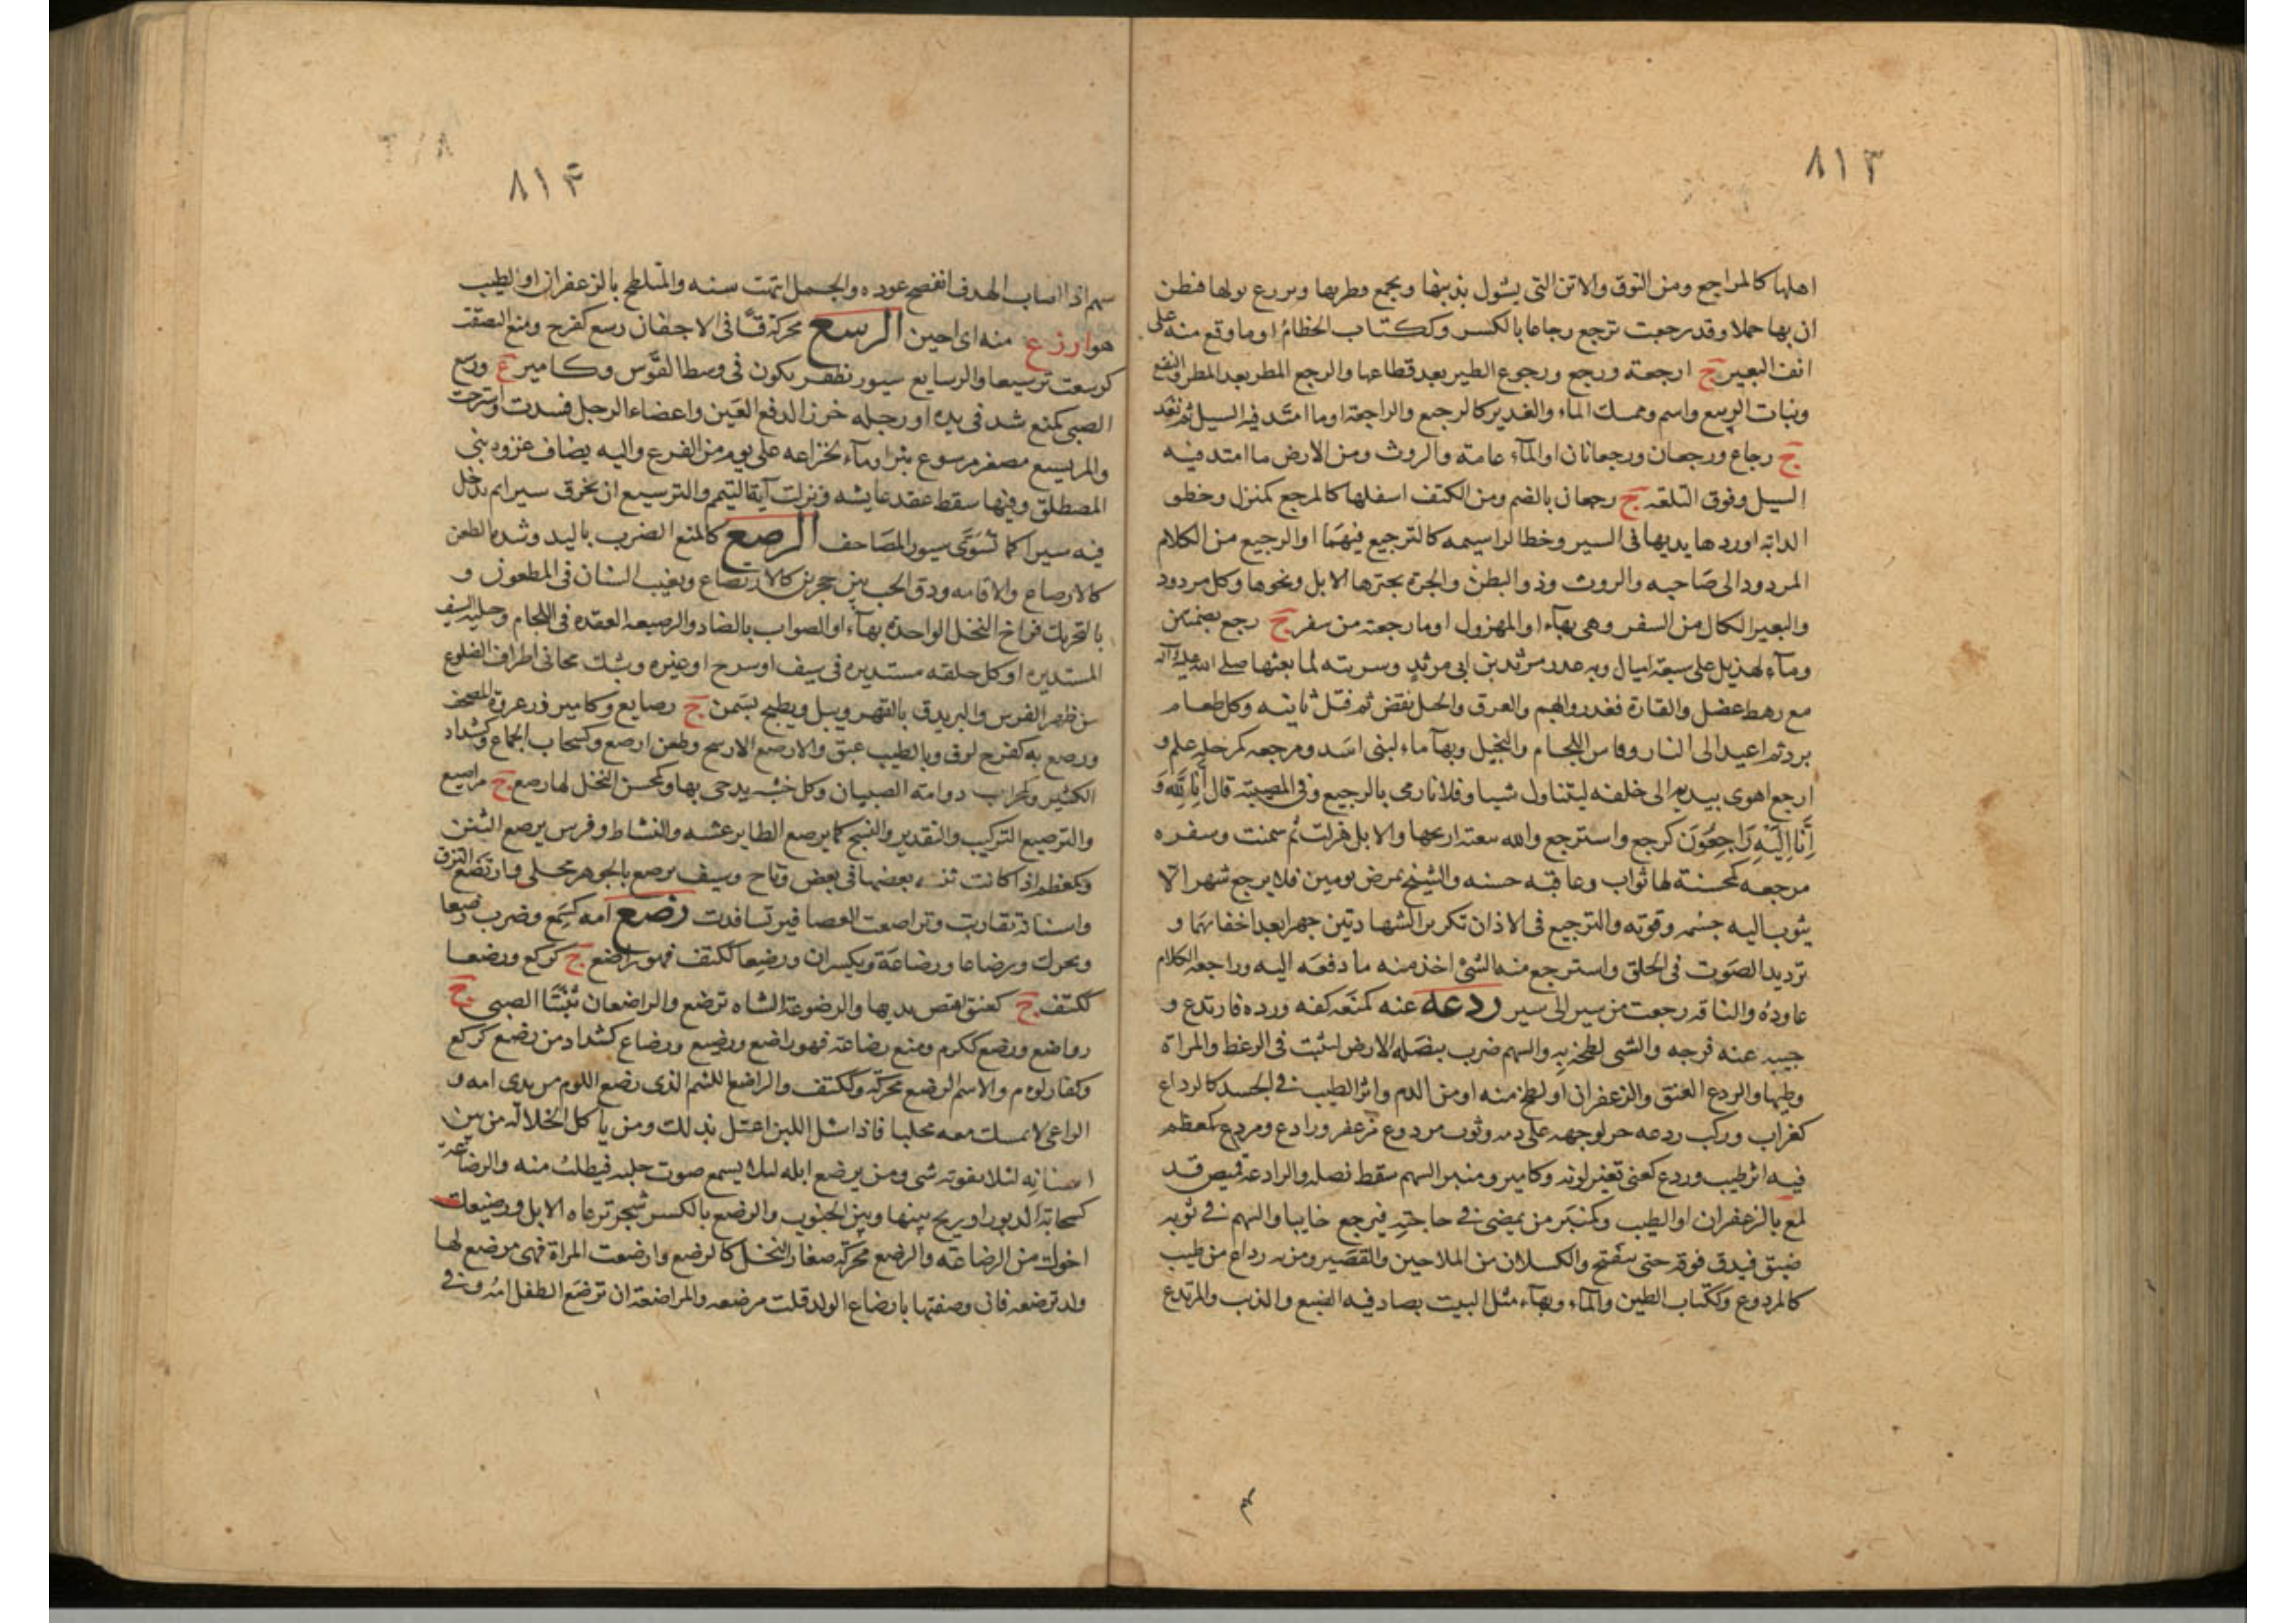 ٨١٣
اهلها كالمراجع ومن النوق والاتن التى يشول بذنبها ويجمع قطريها وبررع بولها فنظن
ان بها حملا وقد رجعت ترجع رجاعا بالكسر وككتاب الخطام او ما وقع منه على
انف البعير ج ارجعة ورجع ورجوع الطير بعد قطاعها والرجع المطر بعد المطر والنفع
ونبات الربيع واسم وممسك الماء والغدير كالرجيع والراجعة او ما امتد فيه السيل ثم نفذ
ج رجاع ورجعان ورجعانان او الماء عامة والروث ومن الارض ما امتد فيه
السيل وفوق التلقه ج رجعان بالضم ومن الكتف اسفلها كالمرجع كمنزل وخطو
الدابة اوردها يديها فى السير وخط الراسيمه كالترجيع فيهما او الرجيع من الكلام
المردود الى صاحبه والروث وذو البطن والجرة يجترها الابل ونحوها وكل مردود
والبعير الكال من السفر وهى بهآء او المهزول او ما رجعته من سفر ج رجع بضمتين
ومآء لهذيل على سبعة اميال وبه غدر مرثد بن ابى مرثد وسريته لما بعثها صلى الله عليه وآله
مع رهط عضل والقارة فغدروا بهم والعرق والحبل نقض ثم فتل ثانيه وكل طعام
برد ثم اعيد الى النار وفاس اللجام والبخيل وبهآء ماء لبنى اسد ومرجعه كمرحلة علم و
ارجع اهوى بيديه الى خلفه ليتناول شيا وفلانا رمى بالرجيع وفى المصيبة قال انا لله و
انا اليه راجعون كرجع واسترجع والله بيعته اربحها والابل هزلت ثم سمنت وسفره
مرجعه كمحسنة لها ثواب وعاقبه حسنه والشيخ يمرض يومين فلا يرجع شهرا اى لا
يثوب اليه جسمه وقوته والترجيع فى الاذان تكرير الشهادتين جهرا بعد اخفائهما و
ترديد الصوت فى الحلق واسترجع منه الشئ اخذ منه ما دفعه اليه وراجعه الكلام
عاوده والناقه رجعت من سير الى سير ردعه عنه كمنعه كفه ورده فارتدع و
جيبه عنه فرجه والشى لطخه به والسهم ضرب بنصله الارض ليثبت فى الرعظ والمراة
وطيها والردع العنق والزعفران او لطخ منه او من الدم واثر الطيب فى الجسد كالرداع
كغراب وركب ردعه خر لوجهه على دمه وثوب مردوع مزعفر ورادع ومردع كمعظم
فيه اثر طيب وردع كعنى تغير لونه وكامير ومنبر السهم سقط نصله والرادعة قميص قد
لمع بالزعفران او الطيب وكمنبر من يمضى فى حاجته فيرجع خايبا والسهم فى فوقه
ضيق فيدق فوقه حتى ينفتح والكسلان من الملاحين والقصير ومن به رداع من طيب
كالمردوع وككتاب الطين والماء وبهآء مثل البيت يصاد فيه الضبع والذئب والمرتدع
٨١٤
سهم اذا اصاب الهدف انفضح عوده والجمل انتهت سنه والمتلطخ بالزعفران او الطيب
هو ارزع منه اى اجبن الرسع محركة فى الاجفان رسع كفرح ومنع التصقت
كرسعت ترسيعا والرسايع سيور تظفر يكون فى وسط القوس وكامير ع ورسع
الصبى كمنع شد فى يده او رجله خرزا لدفع العين واعضاء الرجل فسدت واسترخت
والمريسيع مصغر مرسوع بئر او ماء لخزاعه على يوم من الفرع واليه يضاف غزوه بنى
المصطلق وفيها سقط عقد عايشه ونزلت آية التيمم والترسيع ان تخرق سيرا ثم تدخل
فيه سيرا كما تسوى سيور المصاحف الرصع كالمنع الضرب باليد وشدة الطعن
كالارصاع والاقامه ودق الحب بين حجرين كالارتصاع وتغيب السنان فى المطعون و
بالتحريك فراخ النخل الواحدة بهآء او الصواب بالضاد والرصيعه العقده فى اللجام وحليه السيف
المستديره او كل حلقه مستديره فى سيف او سرج او غيره ومشك محانى اطراف الضلوع
من ظهر الفرس والبر يدق بالفهر ويبل ويطبخ بسمن ج رصايع وكامير زر عروة المصحف
ورصع به كفرح لزق وبالطيب عبق والارصع الارسح وطعن ارصع وكسحاب الجماع وكشداد
الكثير وكمحراب دوامة الصبيان وكل خشبه يدحى بها وكمحسن النخل لها رصع ج مراصيع
والترصيع التركيب والتقدير والنسج كما يرصع الطاير عشه والنشاط وفرس مرصع الثنن
وكمعظم اذا كانت ثننه بعضها فى بعض وتاج وسيف مرصع بالجوهر محلى وارتصع التزق
واسنانه تقاربت وتراصعت العصافير تسافدت رضع امه كسمع وضرب رضعا
ويحرك ورضاعا ورضاعة ويكسران ورضعا ككتف فهو راضع ج كركع ورضعا
ككتف ج كعنق امتص ثديها والرضوعة الشاه ترضع والراضعان ثنيتا الصبى ج
رواضع ورضع ككرم ومنع رضاعة فهو راضع ورضيع ورضاع كشداد من رضع كركع
وكفار لؤم والاسم الرضع محركة وككتف والراضع اللئيم الذى رضع اللؤم من ثدى امه و
الراعى لا يمسك معه محلبا فاذا سئل اللبن اعتل بذلك ومن ياكل الخلالة من بين
اسنانه لئلا يفوته شى ومن يرضع ابله لئلا يسمع صوت حلبه فيطلب منه والرضاعة
كسحابة الدبور او ريح بينها وبين الجنوب والرضع بالكسر شجر ترعاه الابل ورضيعك
اخوك من الرضاعة والرضع محركة صغار النخل كالرضع وارضعت المراة فهى مرضع لها
ولد ترضعه فان وصفتها بارضاع الولد قلت مرضعه والمراضعة ان ترضع الطفل امه وفى